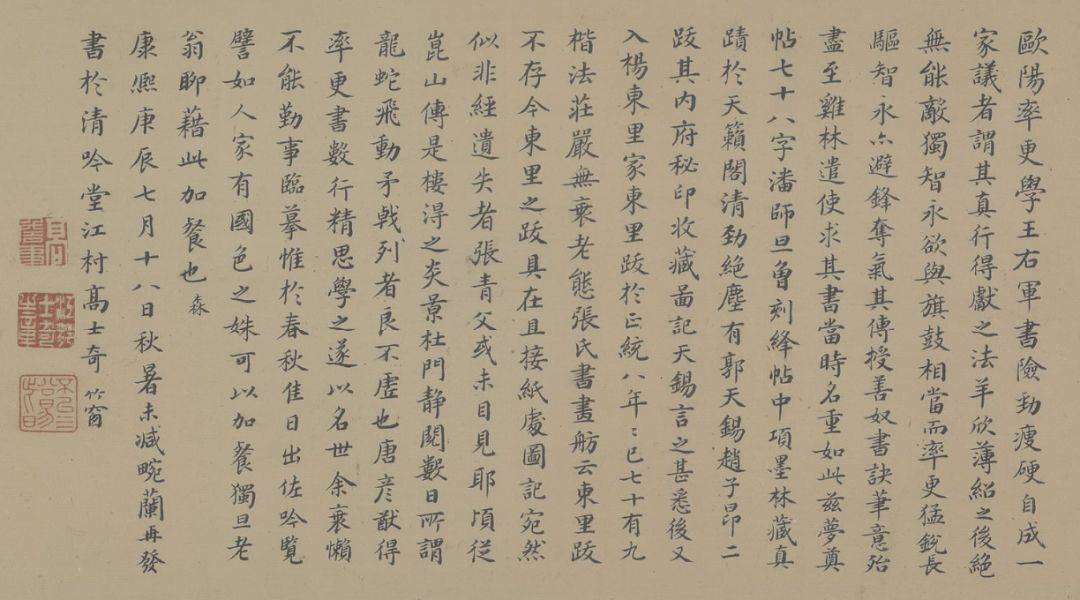 歐陽率更學王右軍書險勁瘦硬自成一
家議者謂其真行得獻之法羊欣薄紹之後絕
無能敵獨智永欲與旗鼓相當而率更猛銳長
驅智永亦避鋒奪氣其傳授善奴書訣筆意殆
盡至雞林遣使求其書當時名重如此茲夢奠
帖七十八字潘師旦曾刻絳帖中項墨林藏真
蹟於天籟閣清勁絕塵有郭天錫趙子昂二
跋其内府秘印收藏啚記天錫言之甚悉後又
入楊東里家東里跋於正統八年〻已七十有九
楷法莊嚴無衰老態張氏書畫舫云東里跋
不存今東里之跋具在且接紙處圖記宛然
似非經遺失者張青父或未目見耶頃從
崑山傳是樓淂之炎景杜門静閱數日所謂
龍蛇飛動矛戟列者良不虛也唐彥猷得
率更書數行精思學之遂以名世余衰懶
不能勤事臨摹惟於春秋佳日出佐吟覧
譬如人家有國色之姝可以加餐獨旦老
翁聊藉此加餐也 森
康熙庚辰七月十八日秋暑未減畹蘭再發
書於清吟堂江村高士奇 竹窗